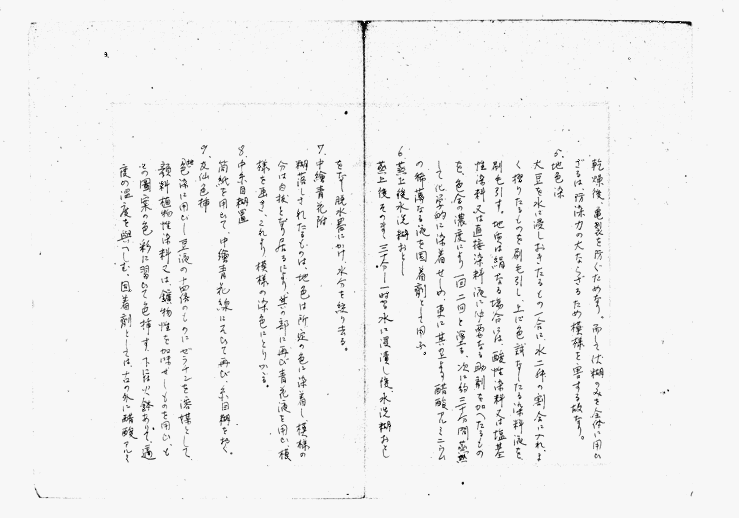 乾燥後、亀裂を防ぐためなり。而して伏糊のみを全体に用ひ
ざるは防染力の大ならざるため模様を害する故なり。
5、地色染
大豆を水に浸しおきたるもの一合に、水二升の割合に入れ、よ
く摺りたるものを刷毛引し、上に色試なしたる染料液を
刷毛引す。地質は絹なる場合には、酸性染料又は塩基
性染料又は直接染料液に必要なる助剤を加へたるもの
を、色合の濃度により一回二回と塗る。次に約三十分間蒸熱
して化学的に染着せしめ、更に其のまま醋酸アルミニウム
の稀薄なる液を固着剤として用ふ。
6、蒸上後水洗糊おとし
蒸上後そのまま三十分〜一時間水に浸漬し後水洗糊おとし
をなし脱水器にかけ、水分を絞り去る。
7、中繪青花附
糊落しされたるものは地色は所定の色に染着し模様の
分は白抜となり居るにより、其の部に再び青花液を用ひ、模
様を画き、これより模様の染色にとりかかる。
8、中糸目糊置
筒紙を用ひて、中繪青花線にそひて再び、糸目糊を於く。
9、友仙色挿
地色染に用ひし豆液の十四倍のものにゼラチンを溶媒として、
顔料植物性染料又は鑛物性を加味せしものを用ひ、も
との圖案の色彩に習ひて色挿す。下には火鉢ありて適
度の温度を與へしむ。固着剤としては、古の外に醋酸アルミ